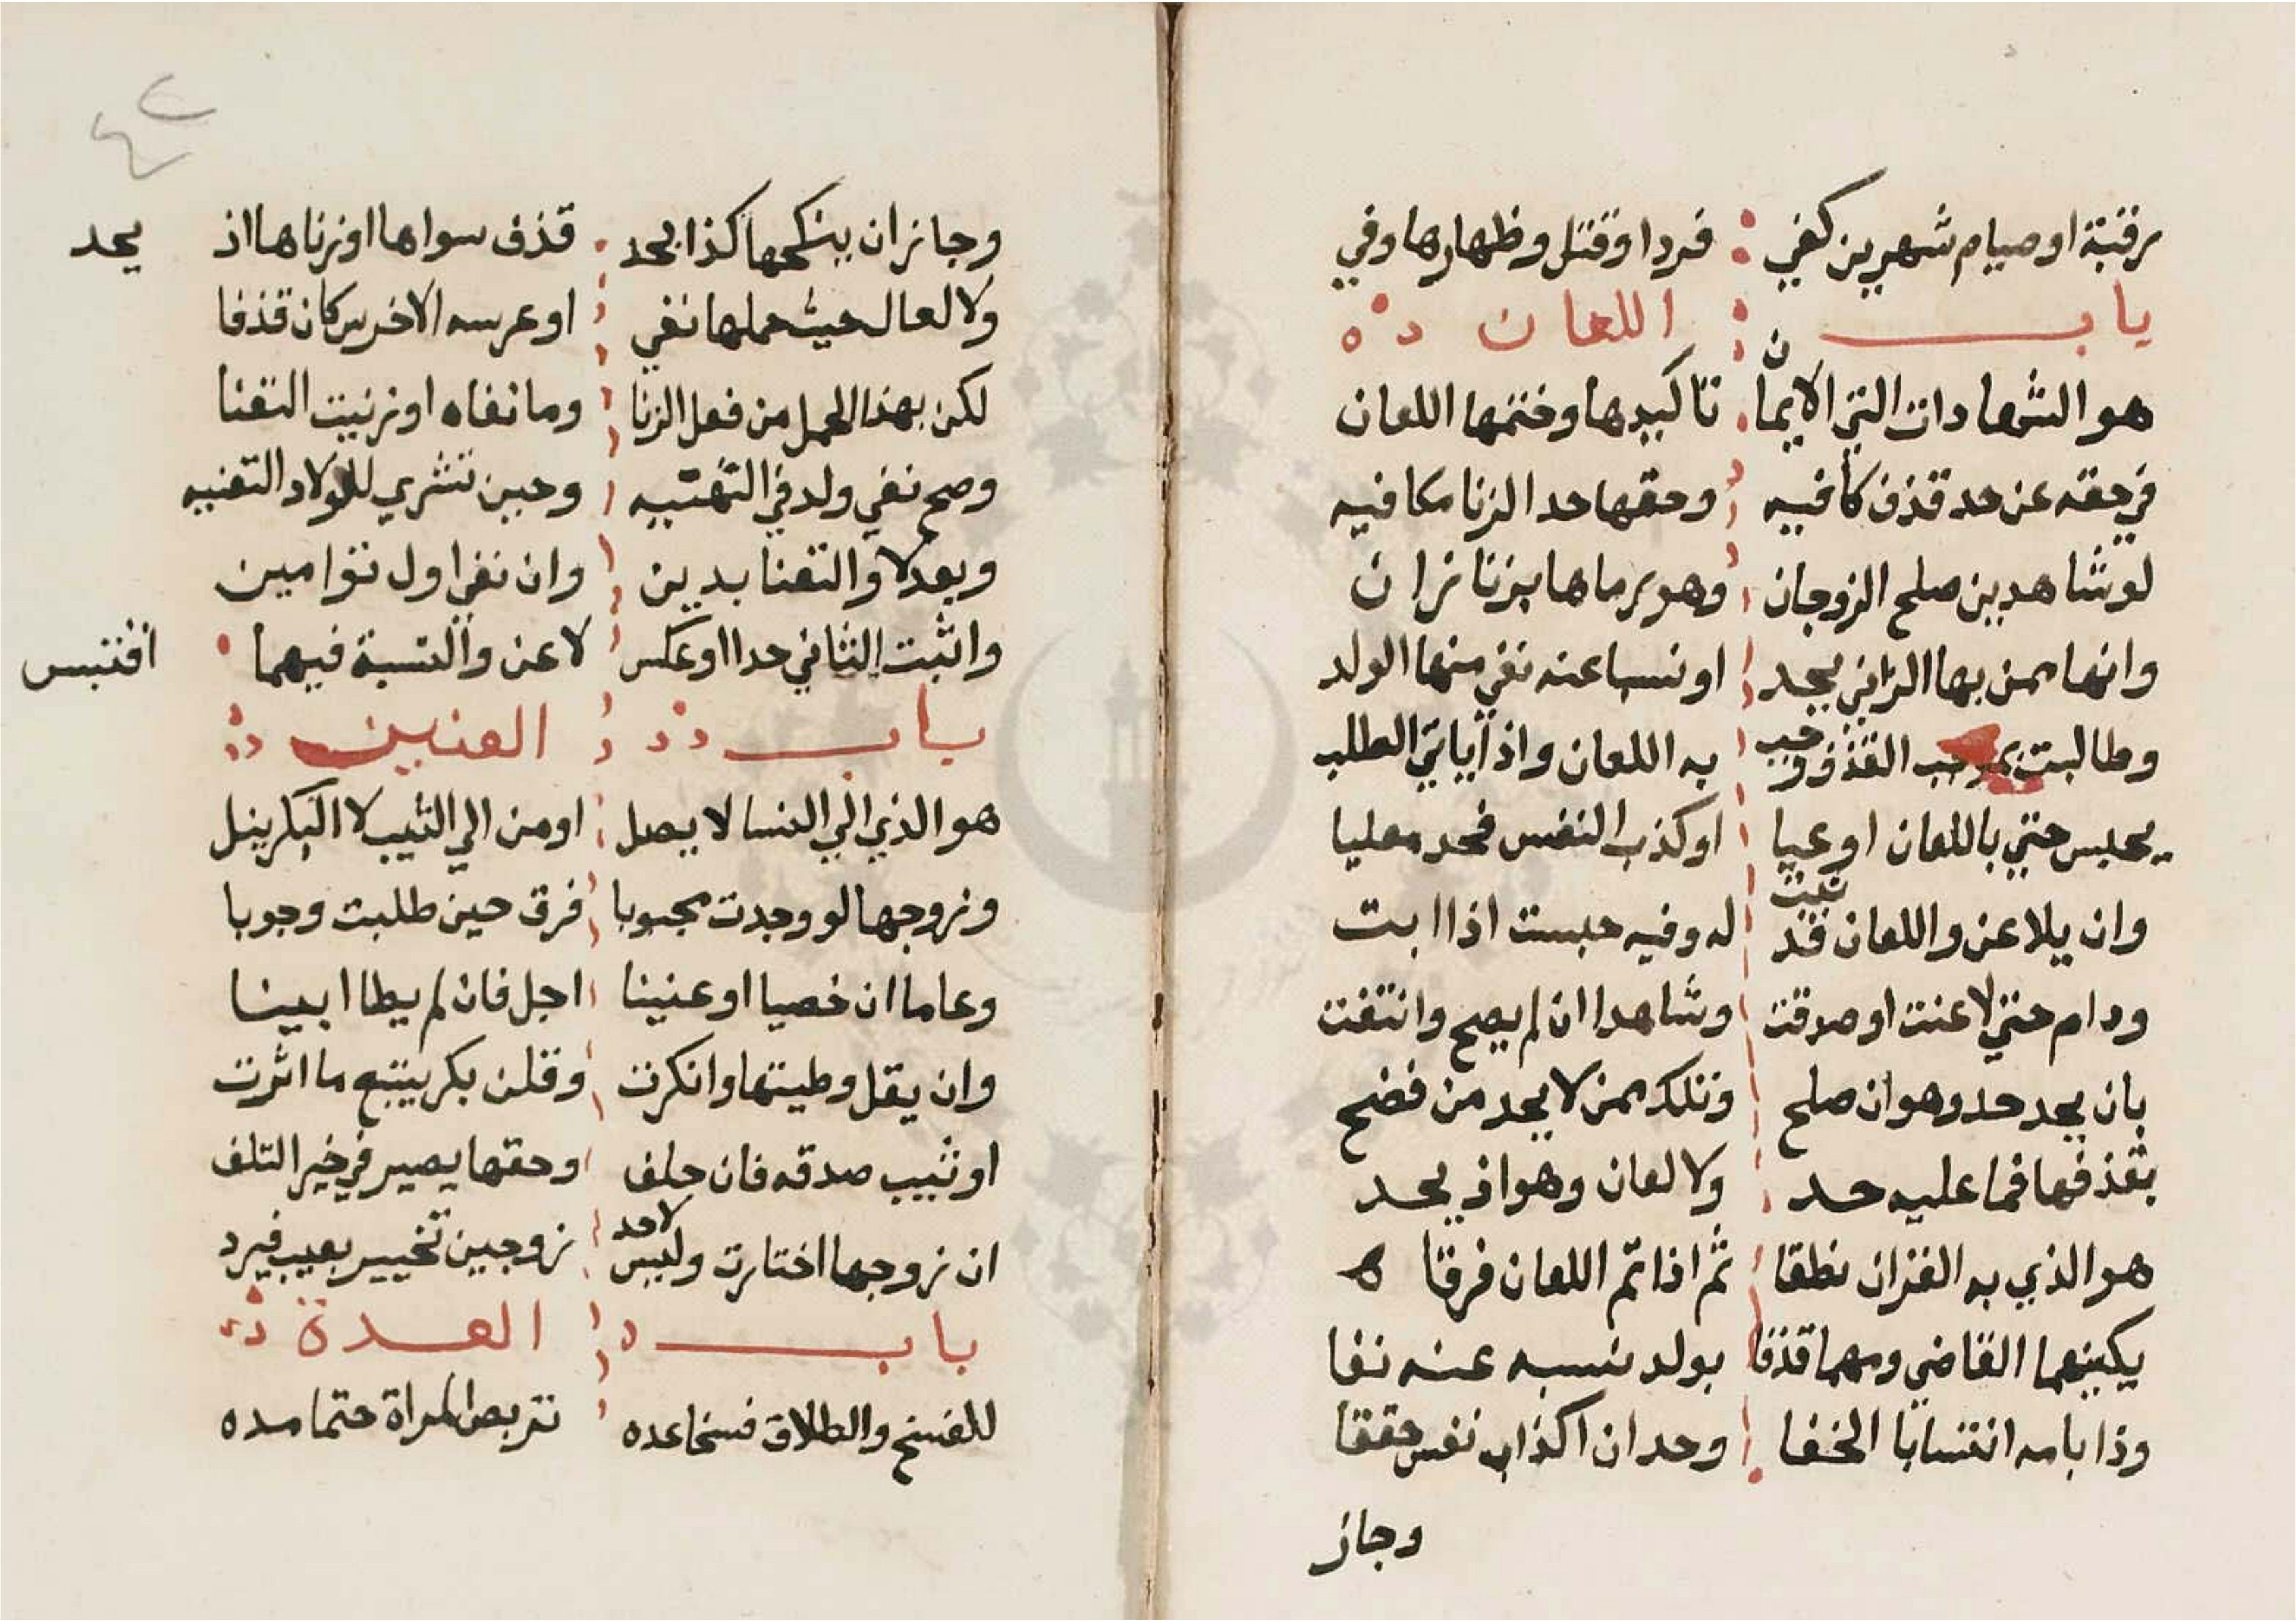 رقبة او صيام شهرين كفي فردا وقتل وظهارها وفي
باب اللعان
هو الشهادات التي الايمان تاكيدها وختمها اللعان
في حقه عن حد قذف كافيه وحقها حد الزنا مكافيه
لو شاهدين صلح الزوجان وهو يرماها بزنا زان
وانها ممن بها الزاني يحد او نسبا عنه نفي منها الولد
وطالبت بموجب القذف وجب به اللعان واذا يابي الطلب
يحبس حتي باللعان اوعيا او كذب النفس فحد معليا
وان يلاعن واللعان قد ثبت له وفيه حبست اذا ابت
ودام حتي لاعنت او صدقت وشاهدا ان لم يصح وانتفت
بان يحد حد وهو ان صلح وتلك ممن لا يحد من فضح
بقذفها فما عليه حد ولا لعان وهو اذ يحد
هو الذي به القران نطقا ثم اذا تم اللعان فرقا
يكينهما القاضي ومهما قذفا بولد نسبه عنه نفا
وذا بامه انتسابا الخفا وحد ان اكذاب نفس حققا
وجاز
٤٢
وجاز ان ينكحها كذا يحد قذف سواها او زناها اذ يحد
ولا لعال حيث حملها نفي او عرسه الاخرس كان قذفا
لكن بهذا الحمل من فعل الزنا وما نفاه او زنيت التقنا
وصح نفي ولد في التهنيه وحين تشري للولاد التقنيه
وبعد لا والتقنا بدين وان نفي اول توامين
واثبت الثاني حدا او عكس لاعن والنسبة فيهما اقتبس
باب العنين
هو الذي الي النسا لا يصل او من الي الثيب لا البكر ينل
وزوجها لو وجدت مجبوبا فرق حين طلبت وجوبا
وعاما ان خصيا او عنينا اجل فان لم يطا ابينا
وان يقل وطيتها وانكرت وقلن بكر يتبع ما اثرت
او ثيب صدقه فان حلف وحقها يصير في خير التلف
ان زوجها اختارت وليس لاحد زوجين تخيير بعيب فيرد
باب العدة
للفسخ والطلاق فسخا عده تربص المراة حتما مده